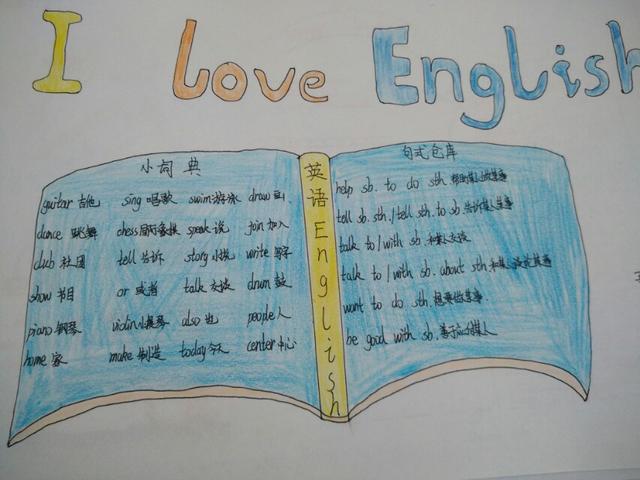 I Love English
小词典
guitar 吉他 sing 唱歌 swim 游泳 draw 画
dance 跳舞 chess 国际象棋 speak 说 join 加入
club 社团 tell 告诉 story 小说 write 写字
show 书目 or 或者 talk 交谈 drum 鼓
piano 钢琴 violin 小提琴 also 也 people 人
home 家 make 制造 today 今天 center 中心
英语 English
句式仓库
help sb. to do sth 帮助某人做某事
tell sb. sth. / tell sth. to sb 告诉某人某事
talk to / with sb 和某人交谈
talk to / with sb. about sth. 和某人谈论某事
want to do sth. 想要做某事
be good with sb. 善于应付某人